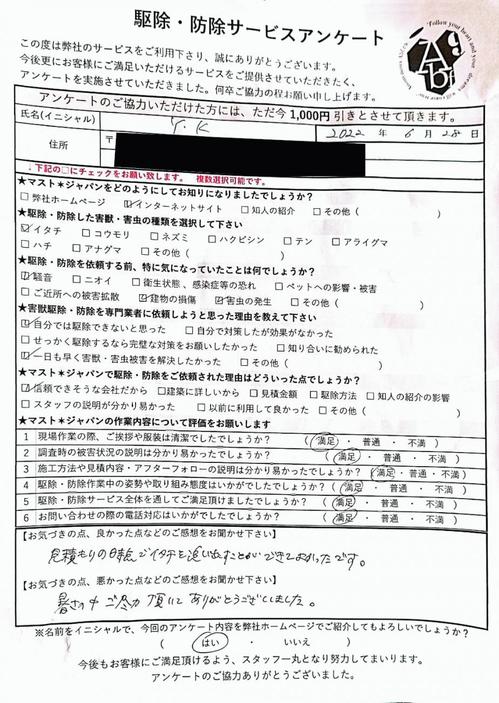 駆除・防除サービスアンケート
この度は弊社のサービスをご利用下さり、誠にありがとうございます。
今後更にお客様にご満足いただけるサービスをご提供させていただきたく、
アンケートを実施させていただきました。何卒ご協力の程お願い申し上げます。
アンケートのご協力いただけた方には、ただ今1,000円引きとさせて頂きます。
氏名(イニシャル) Y.K 2022年 6月 28日
住所 〒
↓下記の□にチェックをお願い致します。 複数選択可能です。
★マスト＊ジャパンをどのようにしてお知りになりましたでしょうか？
□弊社ホームページ ☑インターネットサイト □知人の紹介 □その他（ ）
★駆除・防除した害獣・害虫の種類を選択して下さい
☑イタチ □コウモリ □ネズミ □ハクビシン □テン □アライグマ
□ハチ □アナグマ □その他（ ）
★駆除・防除を依頼する前、特に気になっていたことは何でしょうか？
☑騒音 □ニオイ □衛生状態、感染症等の恐れ □ペットへの影響・被害
□ご近所への被害拡散 ☑建物の損傷 ☑害虫の発生 □その他（ ）
★害獣駆除・防除を専門業者に依頼しようと思った理由を教えて下さい
☑自分では駆除できないと思った □自分で対策したが効果がなかった
□せっかく駆除するなら完璧な対策をお願いしたかった □知り合いに勧められた
☑一日も早く害獣・害虫被害を解決したかった □その他（ ）
★マスト＊ジャパンで駆除・防除をご依頼された理由はどういった点でしょうか？
☑信頼できそうな会社だから □建築に詳しいから □見積金額 □駆除方法 □知人の紹介の影響
□スタッフの説明が分かり易かった □以前に利用して良かった □その他（ ）
★マスト＊ジャパンの作業内容について評価をお願いします
1 現場作業の際、ご挨拶や服装は清潔でしたでしょうか？ （満足・普通・不満）
2 調査時の被害状況の説明は分かり易かったでしょうか？ （満足・普通・不満）
3 施工方法や見積内容・アフターフォローの説明は分かり易かったでしょうか？（満足・普通・不満）
4 駆除・防除作業中の姿勢や取り組み態度はいかがでしたでしょうか？（満足・普通・不満）
5 駆除・防除サービス全体を通してご満足頂けましたでしょうか？（満足・普通・不満）
6 お問い合わせの際の電話対応はいかがでしたでしょうか？（満足・普通・不満）
【お気づきの点、良かった点などのご感想をお聞かせ下さい】
見積もりの時点でイタチを追い出すことができてよかったです。
【お気づきの点、悪かった点などのご感想をお聞かせ下さい】
暑さの中ご尽力頂いてありがとうございました。
※名前をイニシャルで、今回のアンケート内容を弊社ホームページでご紹介してもよろしいでしょうか？
（ はい ・ いいえ ）
今後もお客様にご満足頂けるよう、スタッフ一丸となり努力してまいります。
アンケートのご協力ありがとうございました。